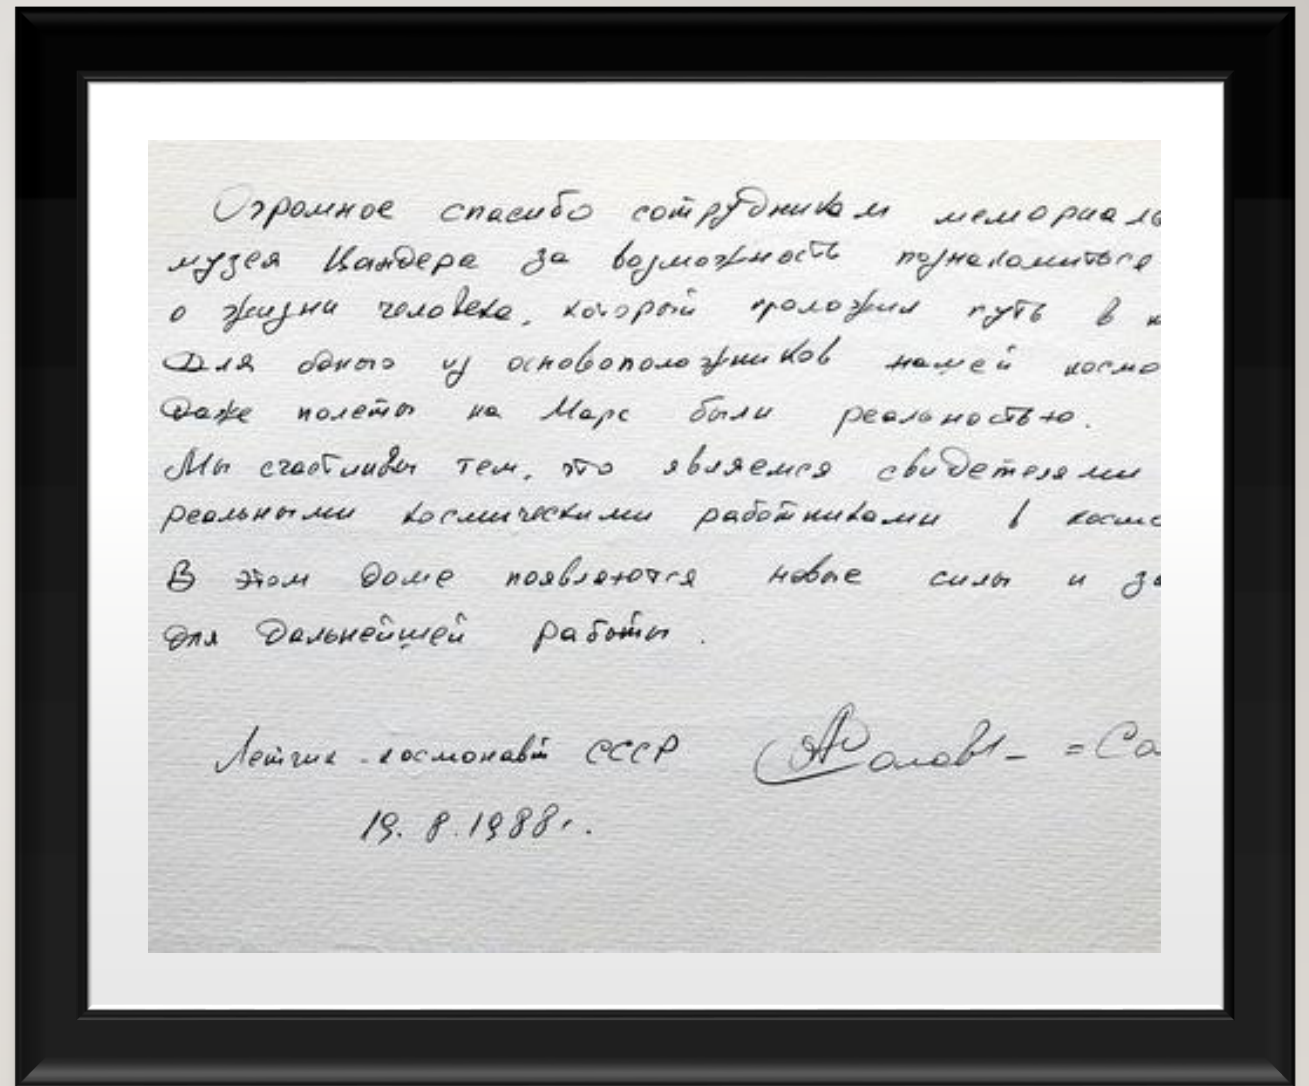 Огромное спасибо сотрудникам мемориаль
музея Цандера за возможность познакомиться
о жизни человека, который проложил путь в к
Для одного из основоположников нашей космо
даже полеты на Марс были реальностью.
Мы счастливы тем, что являемся свидетелями
реальными космическими работниками в космо
В этом доме появляются новые силы и за
для дальнейшей работы.
Летчик-космонавт СССР = Со
19.8.1988г.